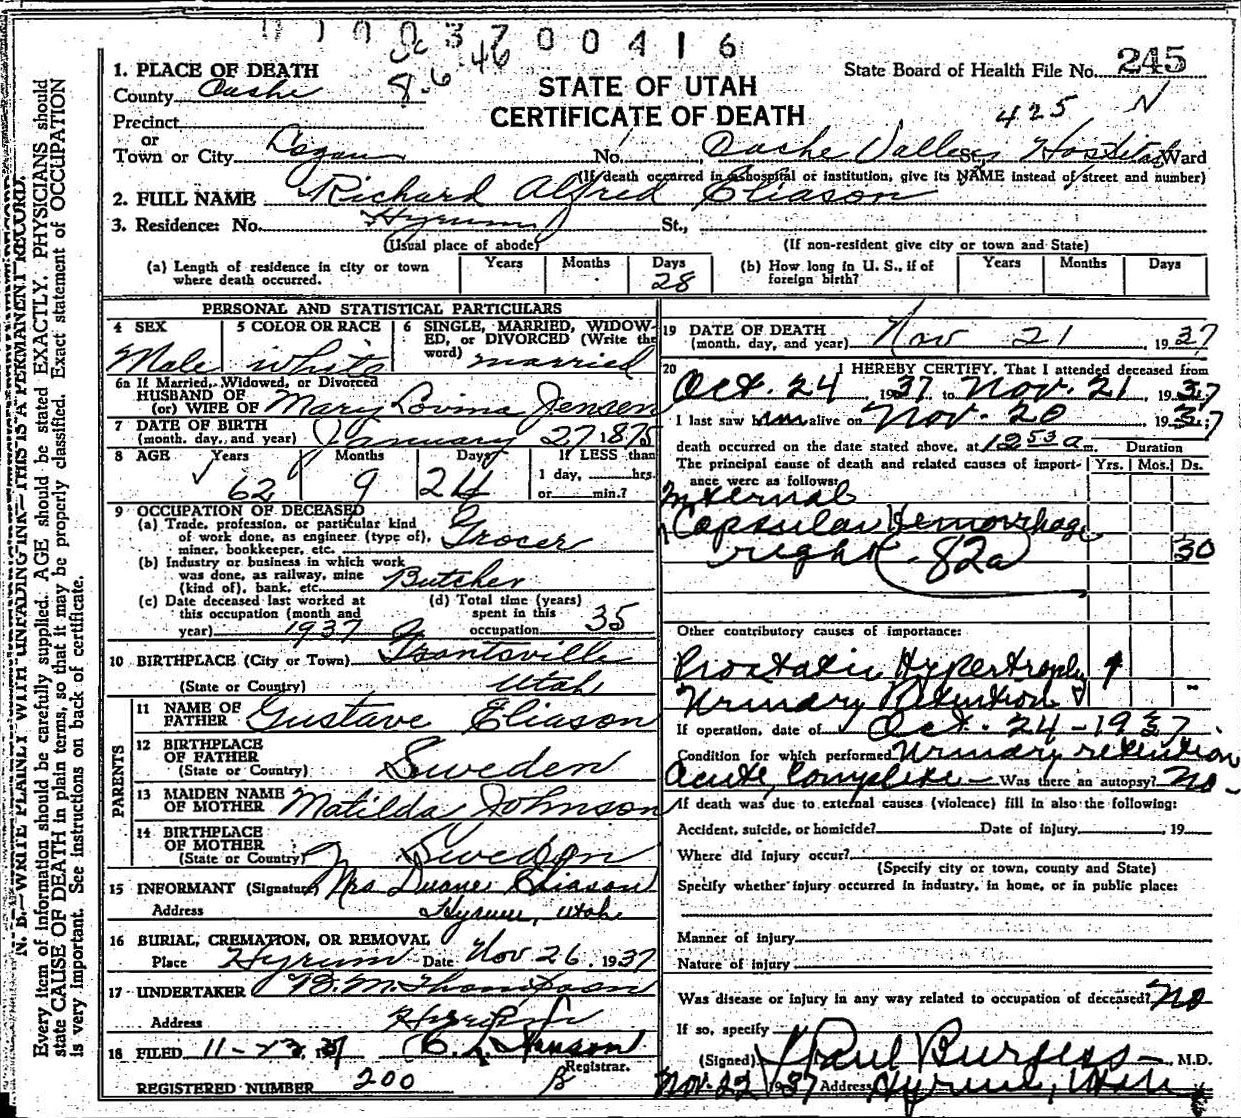 7 1 0 0 3 7 0 0 4 1 6
8-6-46
245
State Board of Health File No.
STATE OF UTAH
CERTIFICATE OF DEATH
425 N
1. PLACE OF DEATH
County Cache
Precinct
or
Town or City Logan No. Cache Valley St., Hospital Ward
(If death occurred in a hospital or institution, give its NAME instead of street and number)
2. FULL NAME Richard Alfred Eliason
3. Residence: No. Hyrum St.,
(Usual place of abode) (If non-resident give city or town and State)
(a) Length of residence in city or town where death occurred. Years Months Days 28
(b) How long in U. S., if of foreign birth? Years Months Days
PERSONAL AND STATISTICAL PARTICULARS
4 SEX Male
5 COLOR OR RACE white
6 SINGLE, MARRIED, WIDOWED, or DIVORCED (Write the word) married
6a If Married, Widowed, or Divorced
HUSBAND OF
(or) WIFE OF Mary Lovina Jensen
7 DATE OF BIRTH
(month, day, and year) January 27 1875
8 AGE Years 62 Months 9 Days 24 If LESS than 1 day, hrs. or min.?
9 OCCUPATION OF DECEASED
(a) Trade, profession, or particular kind of work done, as engineer (type of), miner, bookkeeper, etc. Grocer
(b) Industry or business in which work was done, as railway, mine (kind of), bank, etc. Butcher
(c) Date deceased last worked at this occupation (month and year) 1937
(d) Total time (years) spent in this occupation 35
10 BIRTHPLACE (City or Town) Grantsville
(State or Country) Utah
PARENTS
11 NAME OF FATHER Gustave Eliason
12 BIRTHPLACE OF FATHER (State or Country) Sweden
13 MAIDEN NAME OF MOTHER Matilda Johnson
14 BIRTHPLACE OF MOTHER (State or Country) Sweden
15 INFORMANT (Signature) Mrs Duane Eliason
Address Hyrum, Utah
16 BURIAL, CREMATION, OR REMOVAL
Place Hyrum Date Nov 26, 1937
17 UNDERTAKER B. M. Thompson
Address
18 FILED C. L. Hanson
Registrar.
REGISTERED NUMBER 200
19 DATE OF DEATH
(month, day, and year) Nov 21, 1937
20 I HEREBY CERTIFY, That I attended deceased from
Oct. 24, 1937 to Nov. 21, 1937
I last saw him alive on Nov. 20 1937
death occurred on the date stated above, at 12 53 a m. Duration
The principal cause of death and related causes of importance were as follows: Yrs. Mos. Ds.
Internal
Capsular Hemorrhage
right 82a 30
Other contributory causes of importance:
Prostatic Hypertrophy
Urinary Retention
If operation, date of Oct. 24-1937
Condition for which performed Urinary retention
Acute, Complete Was there an autopsy? No
If death was due to external causes (violence) fill in also the following:
Accident, suicide, or homicide? Date of injury , 19
Where did injury occur?
(Specify city or town, county and State)
Specify whether injury occurred in industry, in home, or in public place:
Manner of injury
Nature of injury
Was disease or injury in any way related to occupation of deceased? No
If so, specify
(Signed) Paul Burgess M.D.
Nov. 22 1937 Address Hyrum, Utah
N. B.—WRITE PLAINLY WITH UNFADING INK—THIS IS A PERMANENT RECORD.
Every item of information should be carefully supplied. AGE should be stated EXACTLY. PHYSICIANS should
state CAUSE OF DEATH in plain terms, so that it may be properly classified. Exact statement of OCCUPATION
is very important. See instructions on back of certificate.